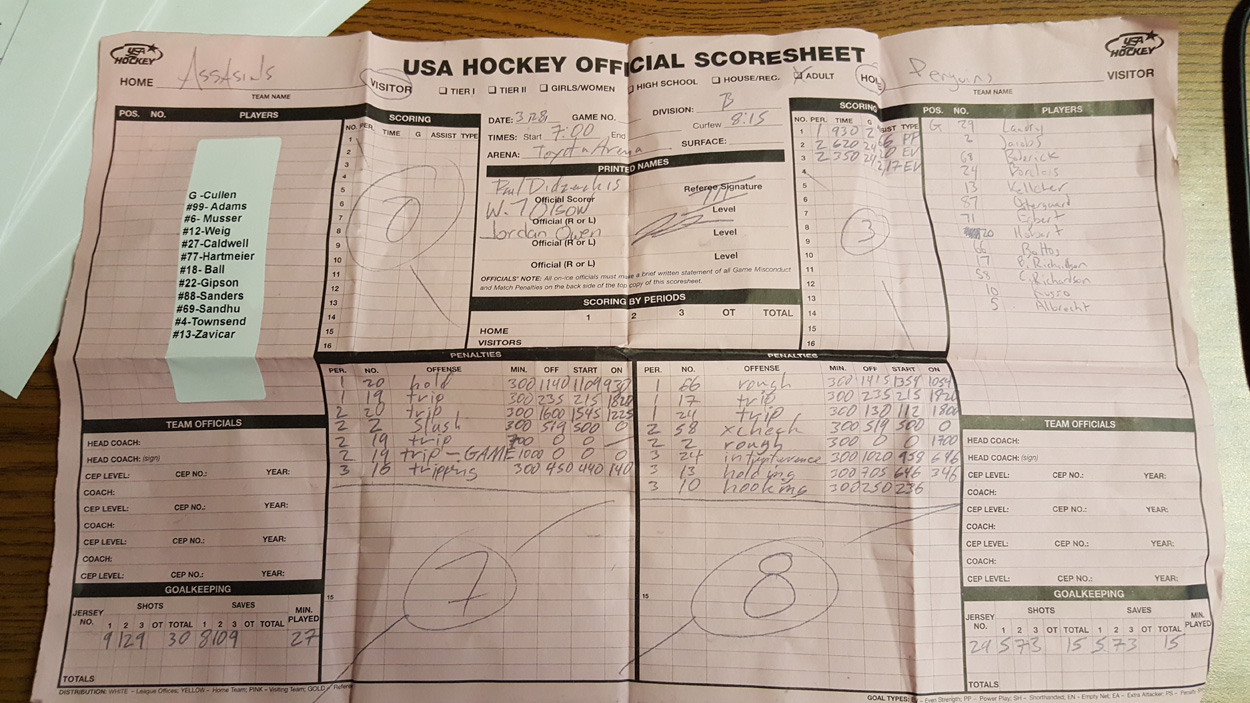 USA HOCKEY
USA HOCKEY OFFICIAL SCORESHEET
USA HOCKEY
HOME Assasins
TEAM NAME
VISITOR
☐ TIER I ☐ TIER II ☐ GIRLS/WOMEN ☐ HIGH SCHOOL ☐ HOUSE/REC. ☑ ADULT
Penguins VISITOR
TEAM NAME
POS. NO. PLAYERS
G -Cullen
#99- Adams
#6- Musser
#12-Weig
#27-Caldwell
#77-Hartmeier
#18- Ball
#22-Gipson
#88-Sanders
#69-Sandhu
#4-Townsend
#13-Zavicar
SCORING
NO. PER. TIME G ASSIST TYPE
1
2
3
4
5
6
7
8
9
10
11
12
13
14
15
16
0
DATE: 3.28 GAME NO.
DIVISION: B
TIMES: Start 7:00 End
Curfew 8:15
ARENA: Toyota Arena
SURFACE:
PRINTED NAMES
Official Scorer
Referee Signature
W. Olson
Official (R or L) Level
Jordan Owen
Official (R or L) Level
Official (R or L) Level
OFFICIALS' NOTE: All on-ice officials must make a brief written statement of all Game Misconduct
and Match Penalties on the back side of the top copy of this scoresheet.
SCORING BY PERIODS
1 2 3 OT TOTAL
HOME
VISITORS
SCORING
NO. PER. TIME G ASSIST TYPE
1 1 930 2 66 PP
2 2 620 24
3 3 350 EV
4
5
6
7
8
9
10
11
12
13
14
15
16
3
POS. NO. PLAYERS
G 29 Landry
2 Jacobs
68
24
13 Kelleher
87
71
20
66
17 P. Richardson
58 C. Richardson
10 Russo
5 Albrecht
PENALTIES
PER. NO. OFFENSE MIN. OFF START ON
1 20 hold 300 1140 1109 930
1 19 trip 300 235 215 1820
2 20 trip 300 1600 1545 1225
2 2 slash 300 519 500 0
2 19 trip 0 0
2 19 trip - GAME 1000 0 0
3 16 tripping 300 450 440 140
7
15
PENALTIES
PER. NO. OFFENSE MIN. OFF START ON
1 66 rough 300 1415 1354 1054
1 17 trip 300 235 215 1820
1 24 trip 300 130 112 1800
2 58 xcheck 300 519 500 0
2 2 rough 300 0 0 1700
3 24 interference 300 1020 646
3 13 holding 300 705 646 346
3 10 hooking 300 250 236
8
15
TEAM OFFICIALS
HEAD COACH:
HEAD COACH: (sign)
CEP LEVEL: CEP NO.: YEAR:
COACH:
CEP LEVEL: CEP NO.: YEAR:
COACH:
CEP LEVEL: CEP NO.: YEAR:
COACH:
CEP LEVEL: CEP NO.: YEAR:
GOALKEEPING
JERSEY NO. SHOTS SAVES MIN. PLAYED
1 2 3 OT TOTAL 1 2 3 OT TOTAL
9 12 9 30 8 10 9 27
TOTALS
TEAM OFFICIALS
HEAD COACH:
HEAD COACH: (sign)
CEP LEVEL: CEP NO.: YEAR:
COACH:
CEP LEVEL: CEP NO.: YEAR:
COACH:
CEP LEVEL: CEP NO.: YEAR:
COACH:
CEP LEVEL: CEP NO.: YEAR:
GOALKEEPING
JERSEY NO. SHOTS SAVES MIN. PLAYED
1 2 3 OT TOTAL 1 2 3 OT TOTAL
29 5 7 3 15 5 7 3 15
TOTALS
DISTRIBUTION: WHITE – League Offices; YELLOW – Home Team; PINK – Visiting Team; GOLD – Referee
GOAL TYPES: – Even Strength; PP – Power Play; SH – Shorthanded; EN – Empty Net; EA – Extra Attacker; PS – Penalty